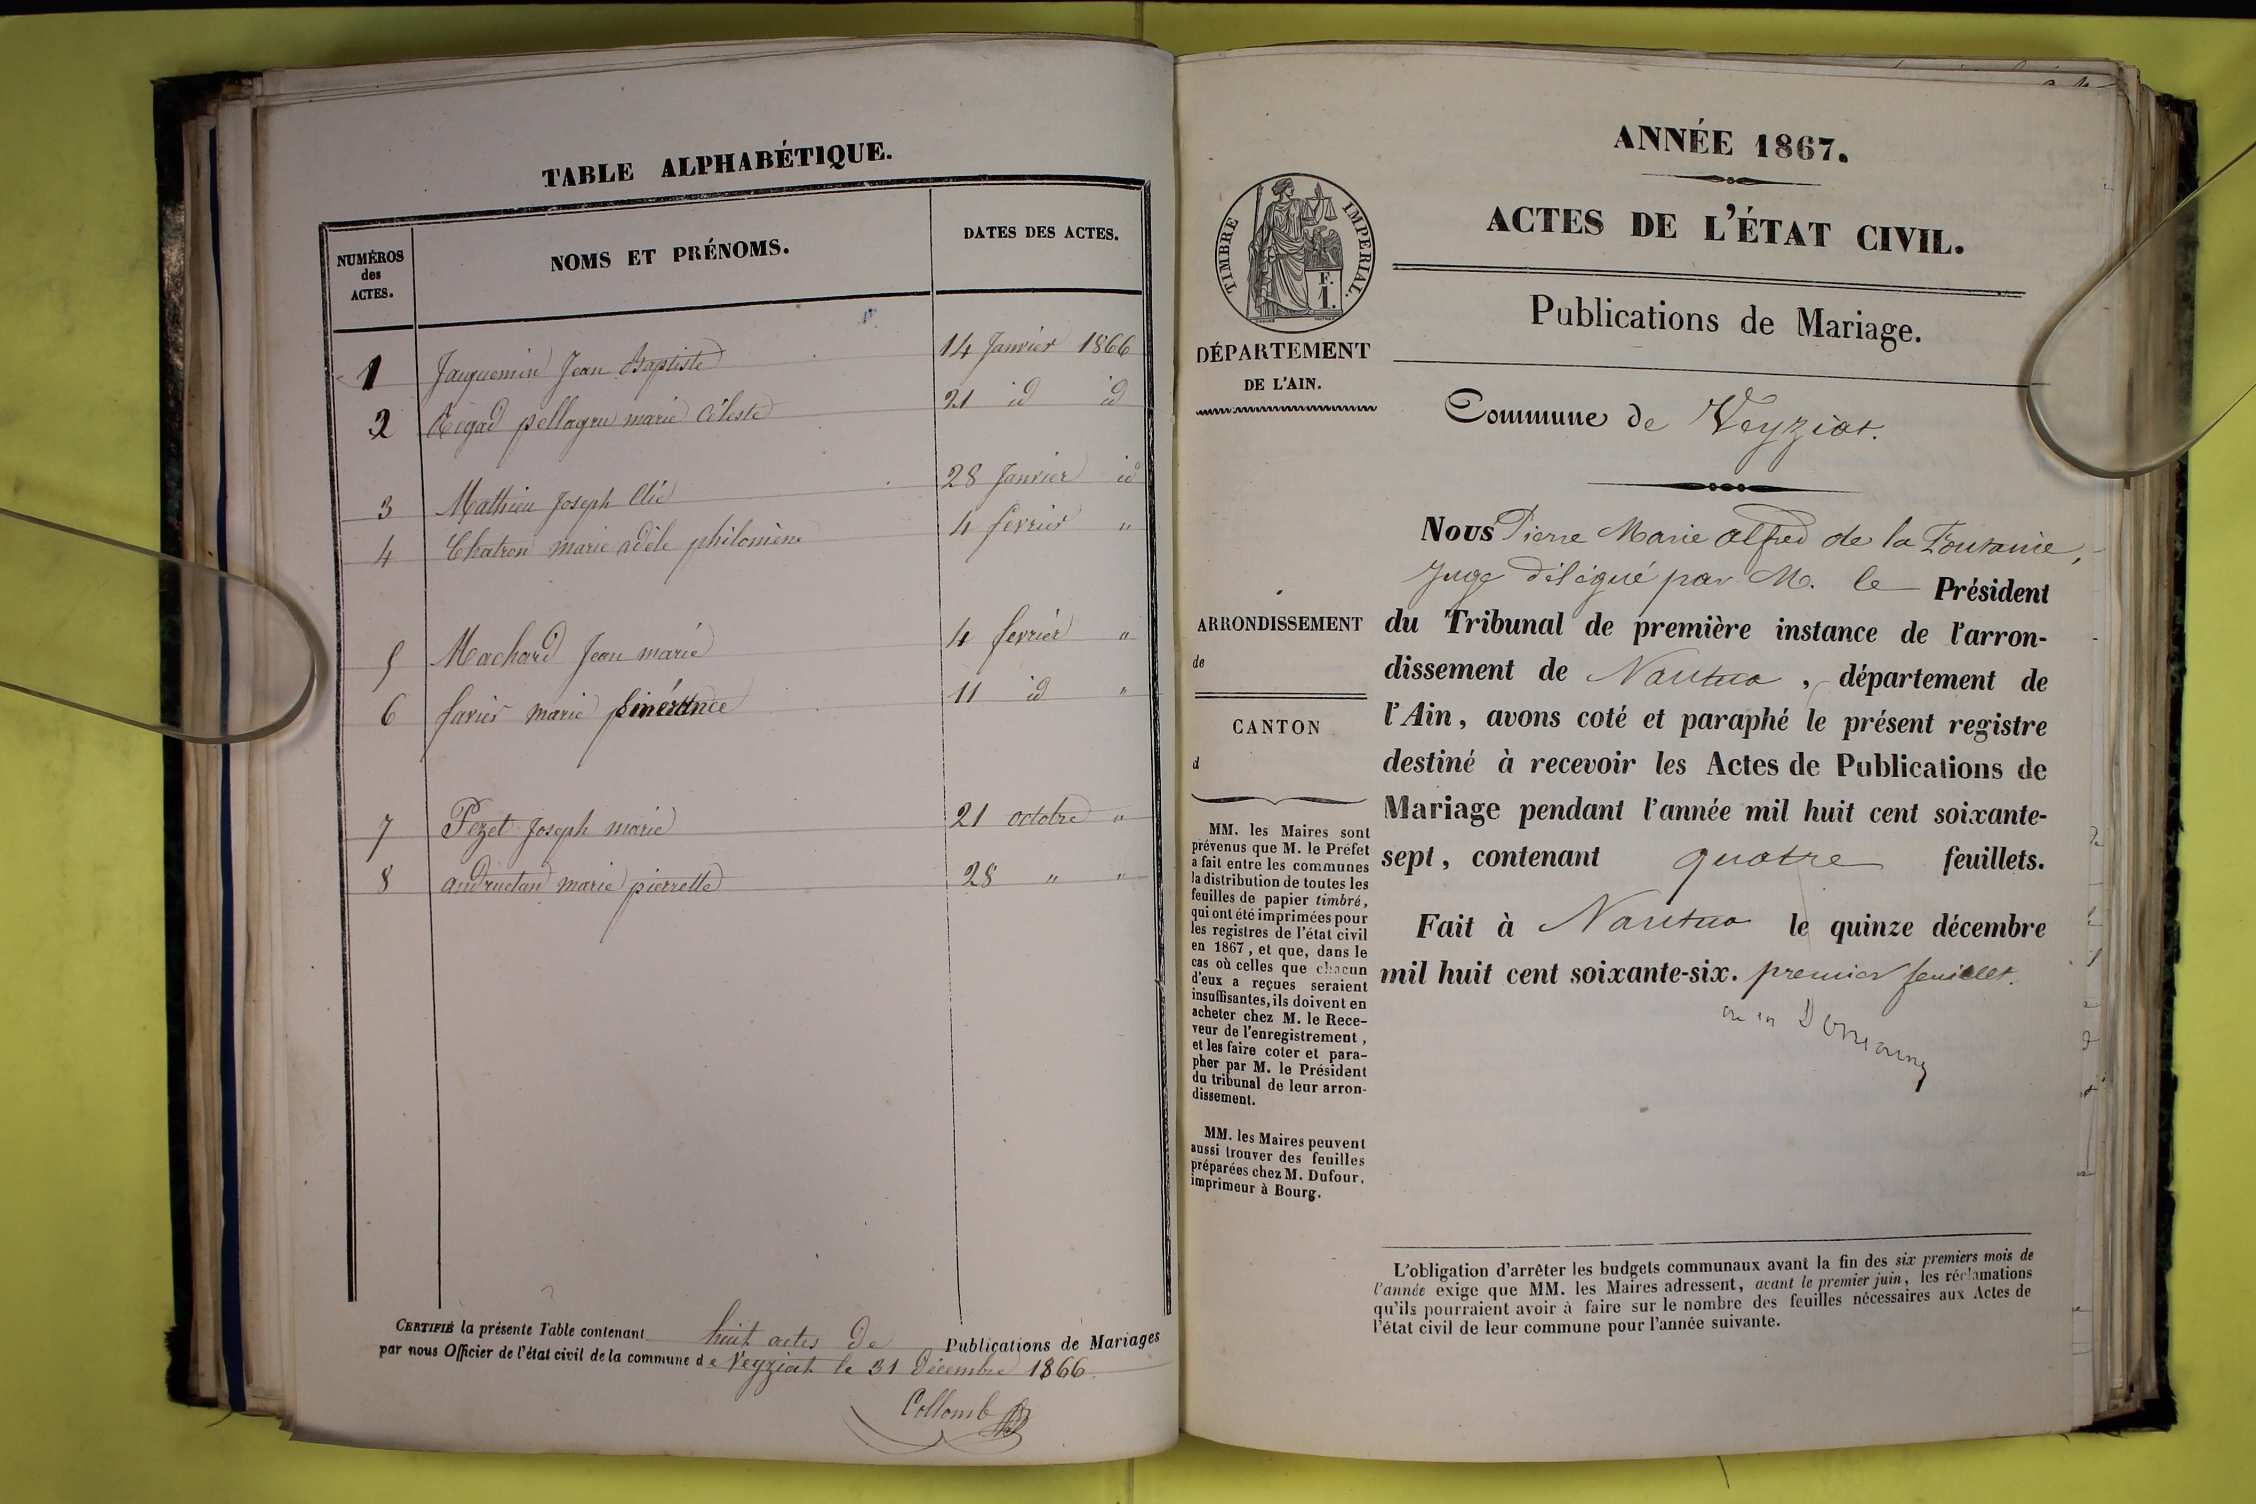 TABLE ALPHABÉTIQUE.
NUMÉROS
des
ACTES.
NOMS ET PRÉNOMS.
DATES DES ACTES.
1 Jacquemin Jean Baptiste 14 Janvier 1866
2 marie Céleste 21 id id
3 Mathieu Joseph 28 Janvier id
4 Chatron marie adèle philomène 4 fevrier "
5 Machard Jean marie 4 fevrier "
6 favier marie 11 id "
7 Pezet Joseph marie 21 octobre "
8 marie pierrette 28 " "
CERTIFIÉ la présente Table contenant huit actes de Publications de Mariages
par nous Officier de l'état civil de la commune de Veyziat le 31 Décembre 1866.
Collomb
ANNÉE 1867.
ACTES DE L'ÉTAT CIVIL.
Publications de Mariage.
Commune de Veyziat.
TIMBRE IMPERIAL.
F.
1.
DÉPARTEMENT
DE L'AIN.
ARRONDISSEMENT
de
CANTON
d
MM. les Maires sont
prévenus que M. le Préfet
a fait entre les communes
la distribution de toutes les
feuilles de papier timbré,
qui ont été imprimées pour
les registres de l'état civil
en 1867, et que, dans le
cas où celles que chacun
d'eux a reçues seraient
insuffisantes, ils doivent en
acheter chez M. le Rece-
veur de l'enregistrement,
et les faire coter et para-
pher par M. le Président
du tribunal de leur arron-
dissement.
MM. les Maires peuvent
aussi trouver des feuilles
préparées chez M. Dufour,
imprimeur à Bourg.
Nous Pierre Marie alfred de la
Juge délégué par M. le Président
du Tribunal de première instance de l'arron-
dissement de Nantua, département de
l'Ain, avons coté et paraphé le présent registre
destiné à recevoir les Actes de Publications de
Mariage pendant l'année mil huit cent soixante-
sept, contenant quatre feuillets.
Fait à Nantua le quinze décembre
mil huit cent soixante-six. premier feuillet.
L'obligation d'arrêter les budgets communaux avant la fin des six premiers mois de
l'année exige que MM. les Maires adressent, avant le premier juin, les réclamations
qu'ils pourraient avoir à faire sur le nombre des feuilles nécessaires aux Actes de
l'état civil de leur commune pour l'année suivante.